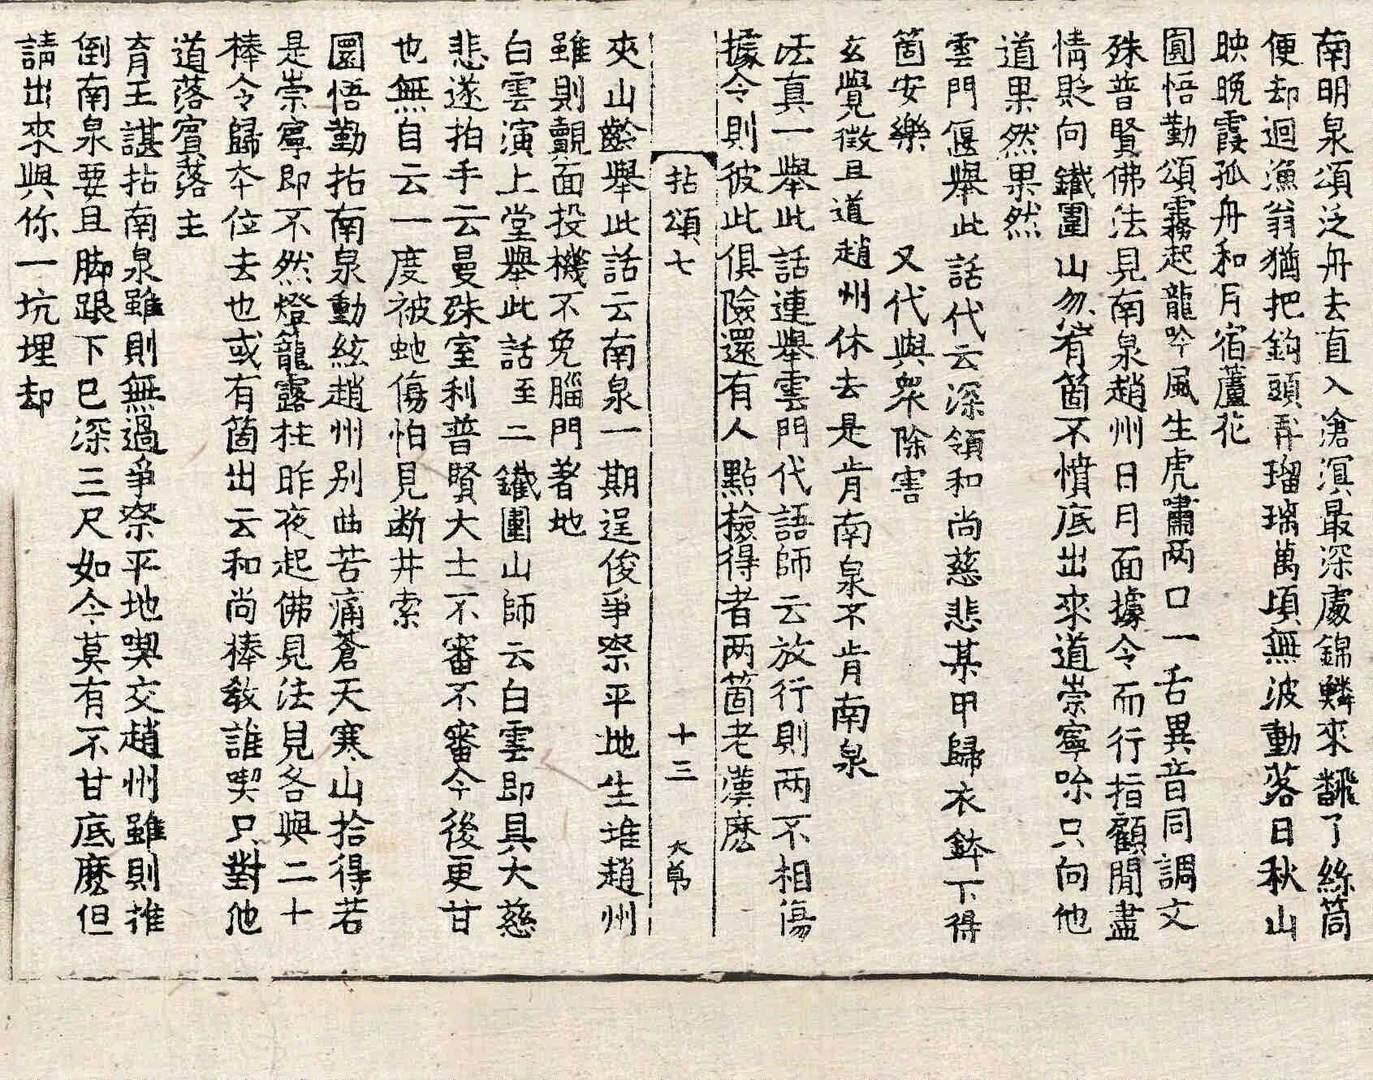 南明泉頌泛舟去直入滄溟最深處錦鱗來飜了絲筒
便却迴漁翁猶把鈎頭弄瑠璃萬頃無波動落日秋山
映晩霞孤舟和月宿蘆花
圓悟勤頌霧起龍吟風生虎嘯两口一舌異音同調文
殊普賢佛法見南泉趙州日月面據令而行指顧閒盡
情貶向鐵圍山勿有箇不憤底出來道崇寧唫只向他
道果然果然
雲門偃舉此話代云深領和尚慈悲某甲歸衣鉢下得
箇安樂　又代與衆除害
玄覺徵且道趙州休去是肯南泉不肯南泉
法真一舉此話連舉雲門代語師云放行則两不相傷
據令則彼此俱險還有人點檢得者两箇老漢麽
拈頌七　十三　大節
夾山齡舉此話云南泉一期逞俊爭祭平地生堆趙州
雖則覿面投機不免腦門著地
白雲演上堂舉此話至二鐵圍山師云白雲即具大慈
悲遂拍手云曼殊室利普賢大士不審不審今後更甘
也無自云一度被虵傷怕見断井索
圜悟勤拈南泉動絃趙州别曲苦痛蒼天寒山拾得若
是崇寧即不然燈籠露柱昨夜起佛見法見各與二十
棒令歸夲位去也或有箇出云和尚棒教誰喫只對他
道落賓落主
育王諶拈南泉雖則無過爭祭平地喫交趙州雖則推
倒南泉要且脚跟下已深三尺如今莫有不甘底麽但
請出來與你一坑埋却